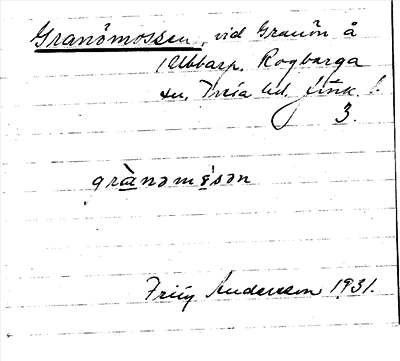 Granömossen, vid Granön å
Ubbarp. Rogberga
sn. Tveta hd. Jönk. l.
3.
grànəmåsən
Fritz Andersson 1931.